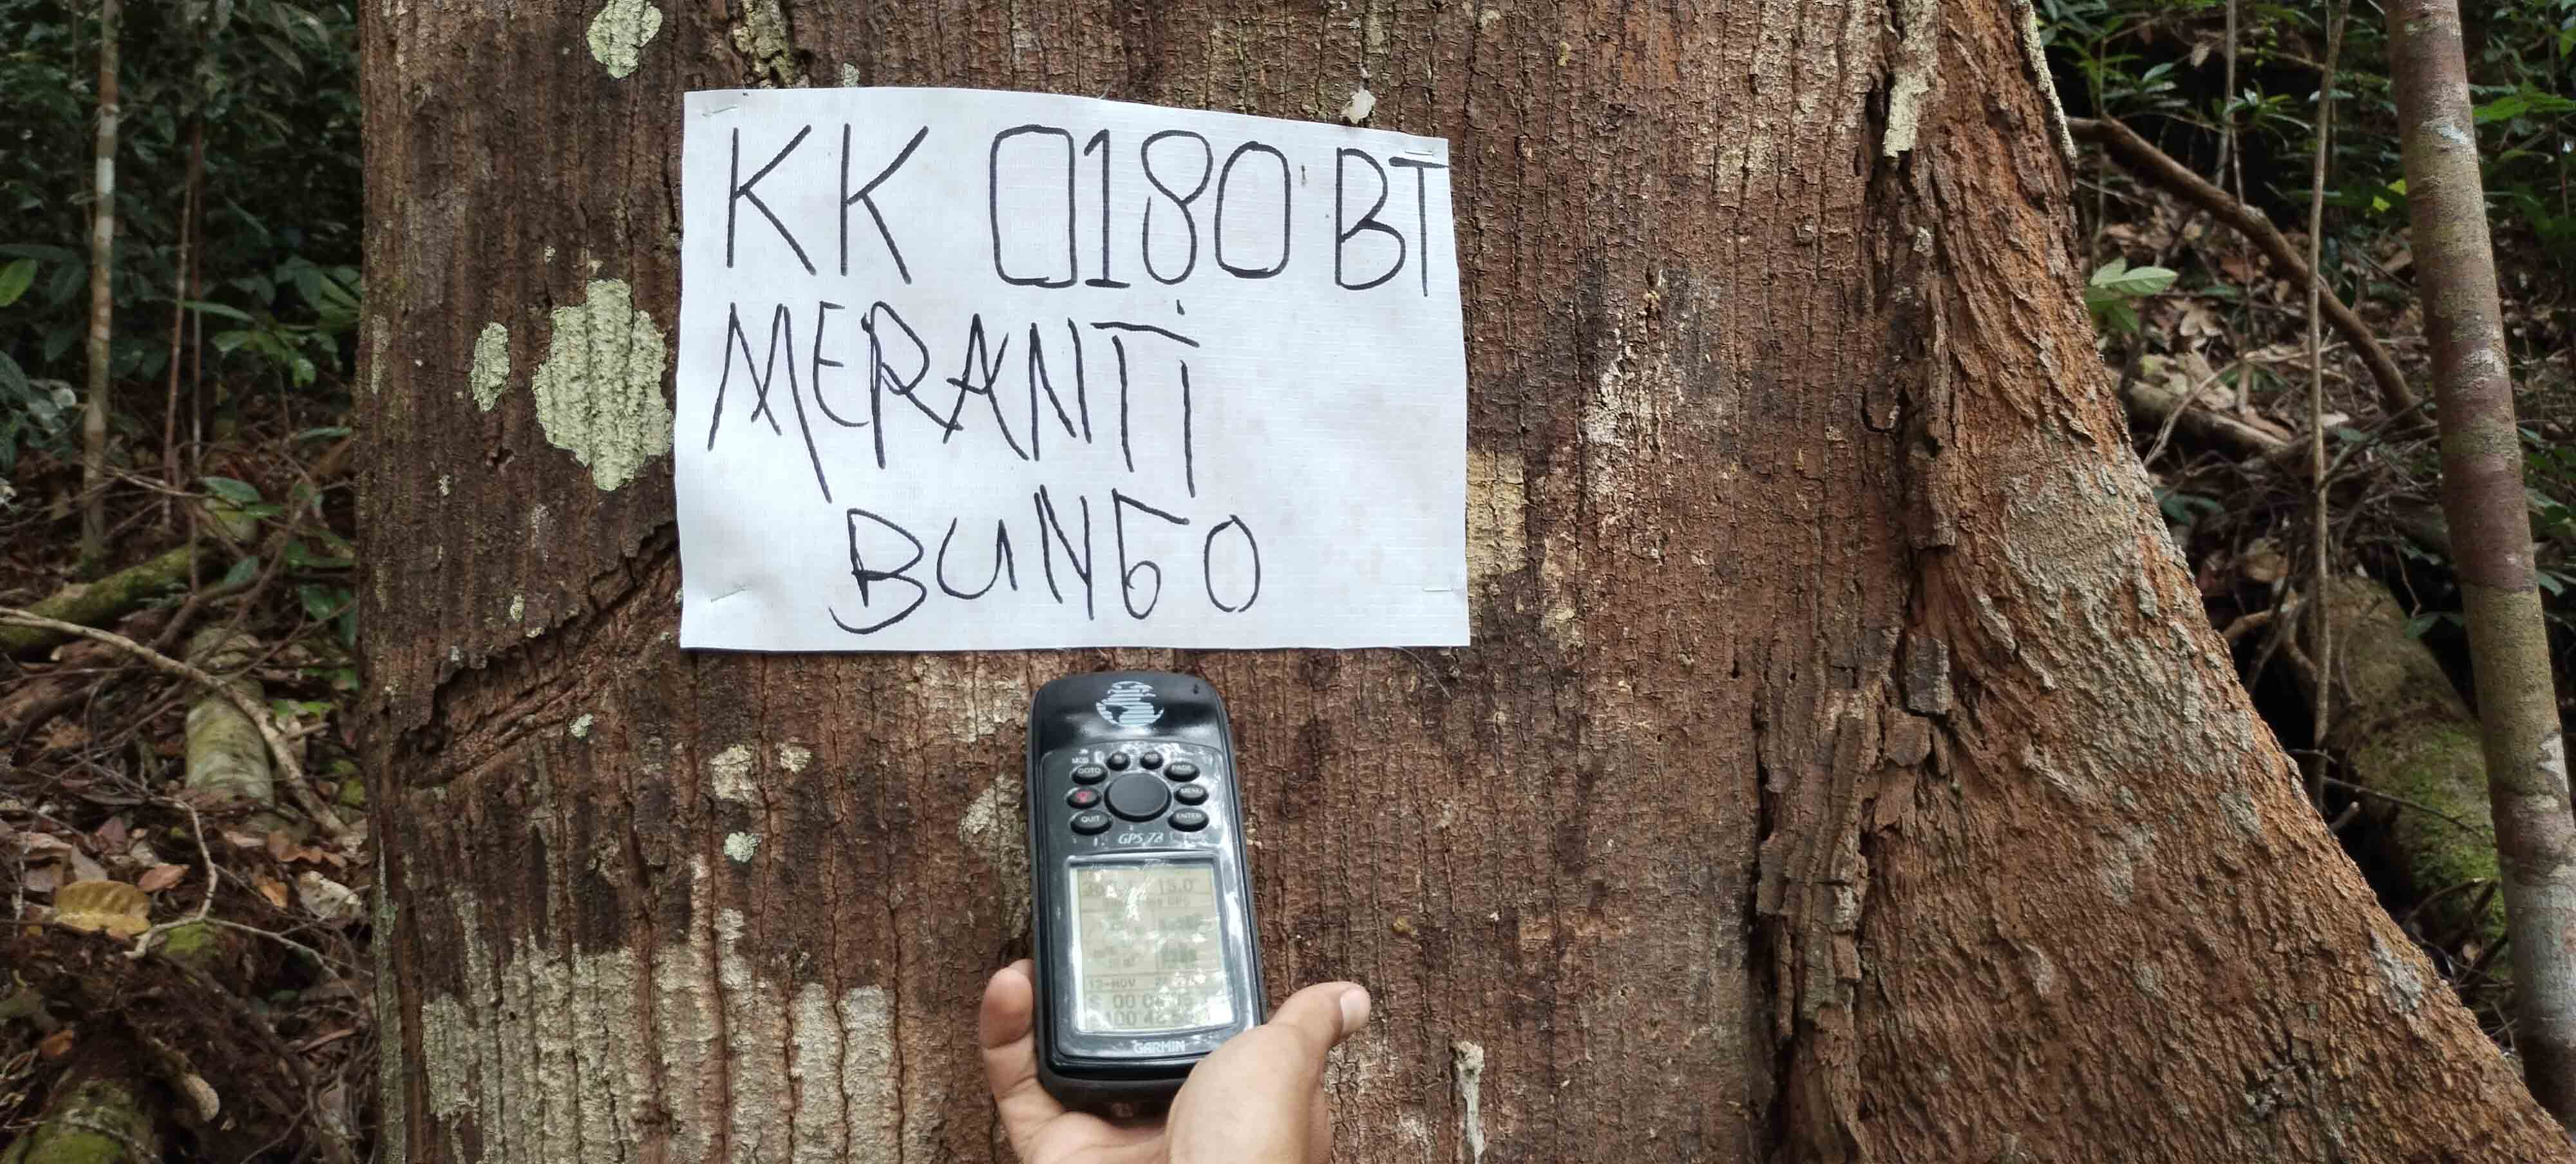 KK 0180 BT
MERANTI
BUNGO
MOB
GOTO
PAGE
MENU
QUIT
ENTER
GPS 72
15.0
GARMIN